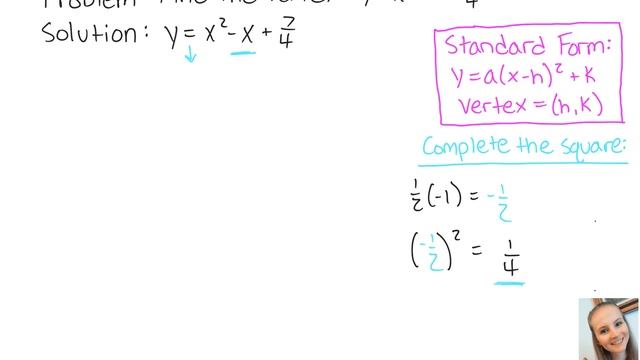 Solution: y = x² - x + 7/4
Standard Form:
y = a(x-h)² + k
vertex = (h,k)
Complete the square:
1/2(-1) = -1/2
(-1/2)² = 1/4